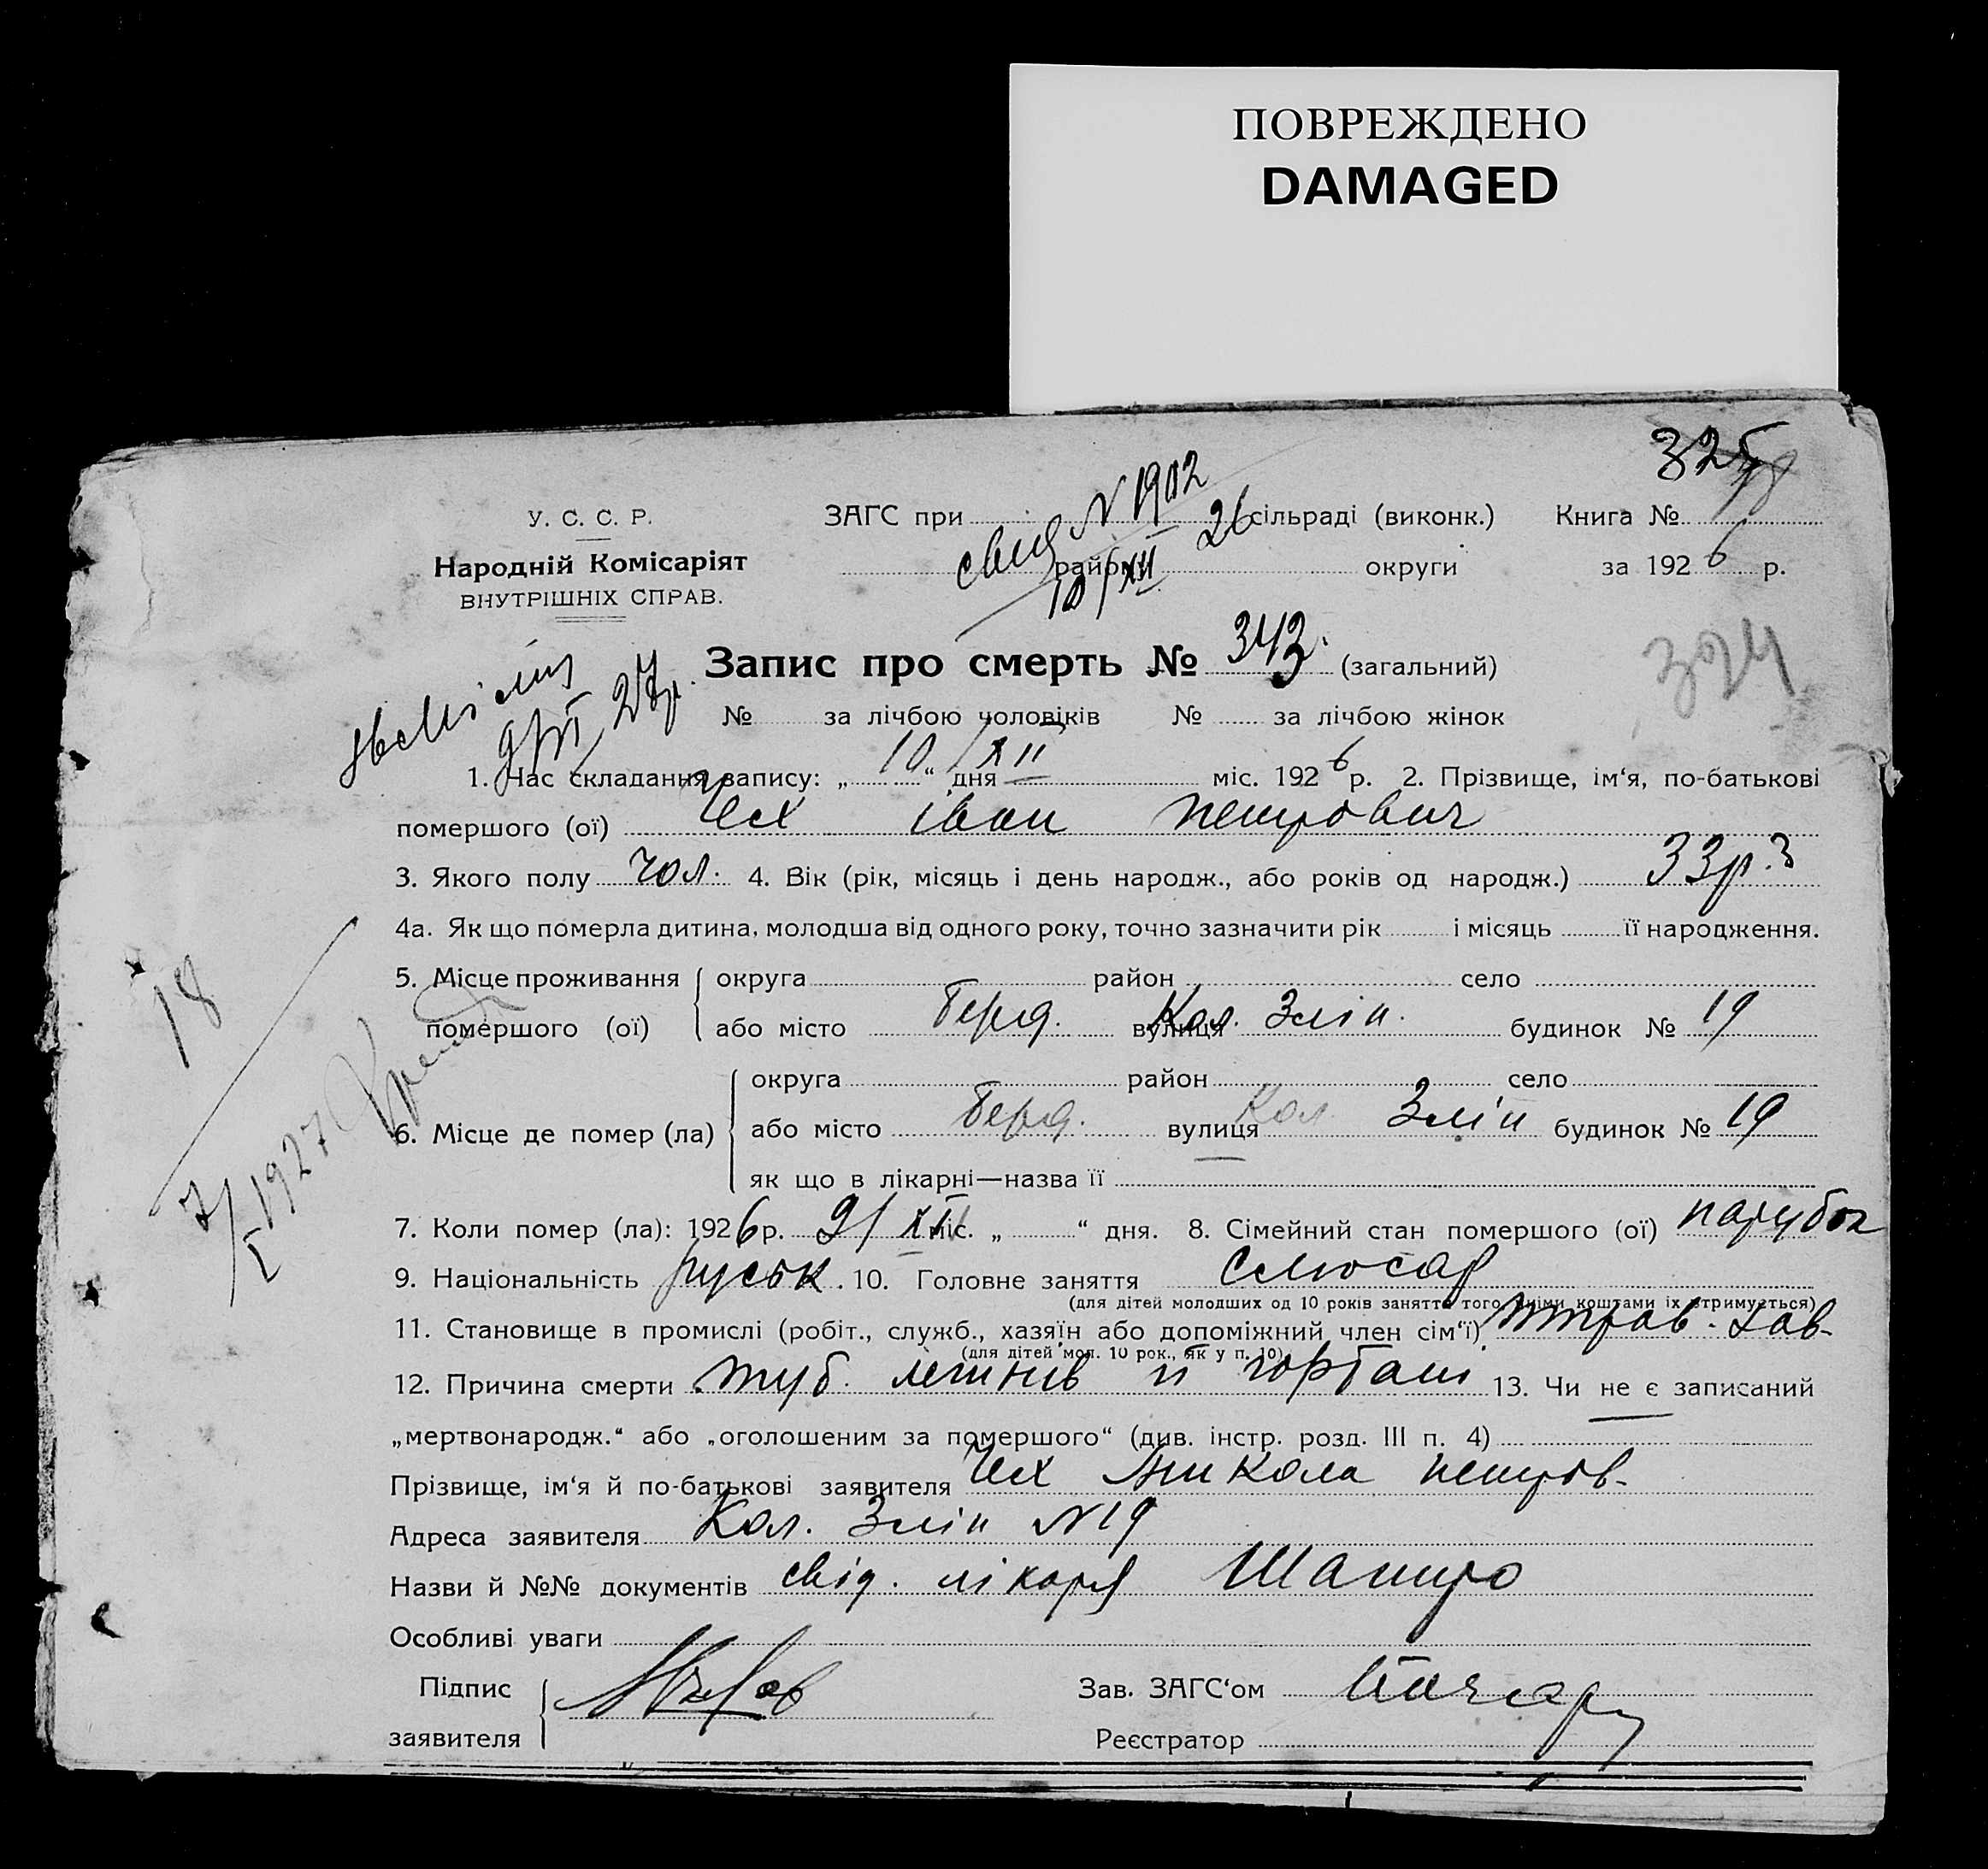 ПОВРЕЖДЕНО
DAMAGED
325
У. С. С. Р.
Народній Комісаріят
ВНУТРІШНІХ СПРАВ.
ЗАГС при N 1902 26 сільраді (виконк.) Книга №
району 10/XII округи за 1926 р.
Запис про смерть № 343. (загальний)
324
27р.
№ за лічбою чоловіків № за лічбою жінок
1. Час складання запису: „10“ дня XII міс. 1926 р. 2. Прізвище, ім‘я, по-батькові
помершого (ої) Чех іван петрович
3. Якого полу чол. 4. Вік (рік, місяць і день народж., або років од народж.) 33р.
4а. Як що померла дитина, молодша від одного року, точно зазначити рік і місяць її народження.
5. Місце проживання округа район село
помершого (ої) або місто Берд. вулиця Кол. Злін. будинок № 19
18
округа район село
6. Місце де помер (ла) або місто Берд. вулиця Кол. Злін будинок № 19
як що в лікарні—назва її
7/I 1927
7. Коли помер (ла): 1926 р. 9/XII міс. „ “ дня. 8. Сімейний стан помершого (ої) парубок
9. Національність руськ. 10. Головне заняття Слюсар
(для дітей молодших од 10 років заняття того, чиїми коштами їх утримується)
11. Становище в промислі (робіт., служб., хазяїн або допоміжний член сім‘ї)
(для дітей мол. 10 рок., як у п. 10)
12. Причина смерти туб. легнів й гортані 13. Чи не є записаний
„мертвонародж.“ або „оголошеним за помершого“ (див. інстр. розд. III п. 4)
Прізвище, ім‘я й по-батькові заявителя Чех Микола петров.
Адреса заявителя Кол. Злін N19
Назви й №№ документів свід. лікаря Шапиро
Особливі уваги
Підпис Зав. ЗАГС‘ом
заявителя Реєстратор